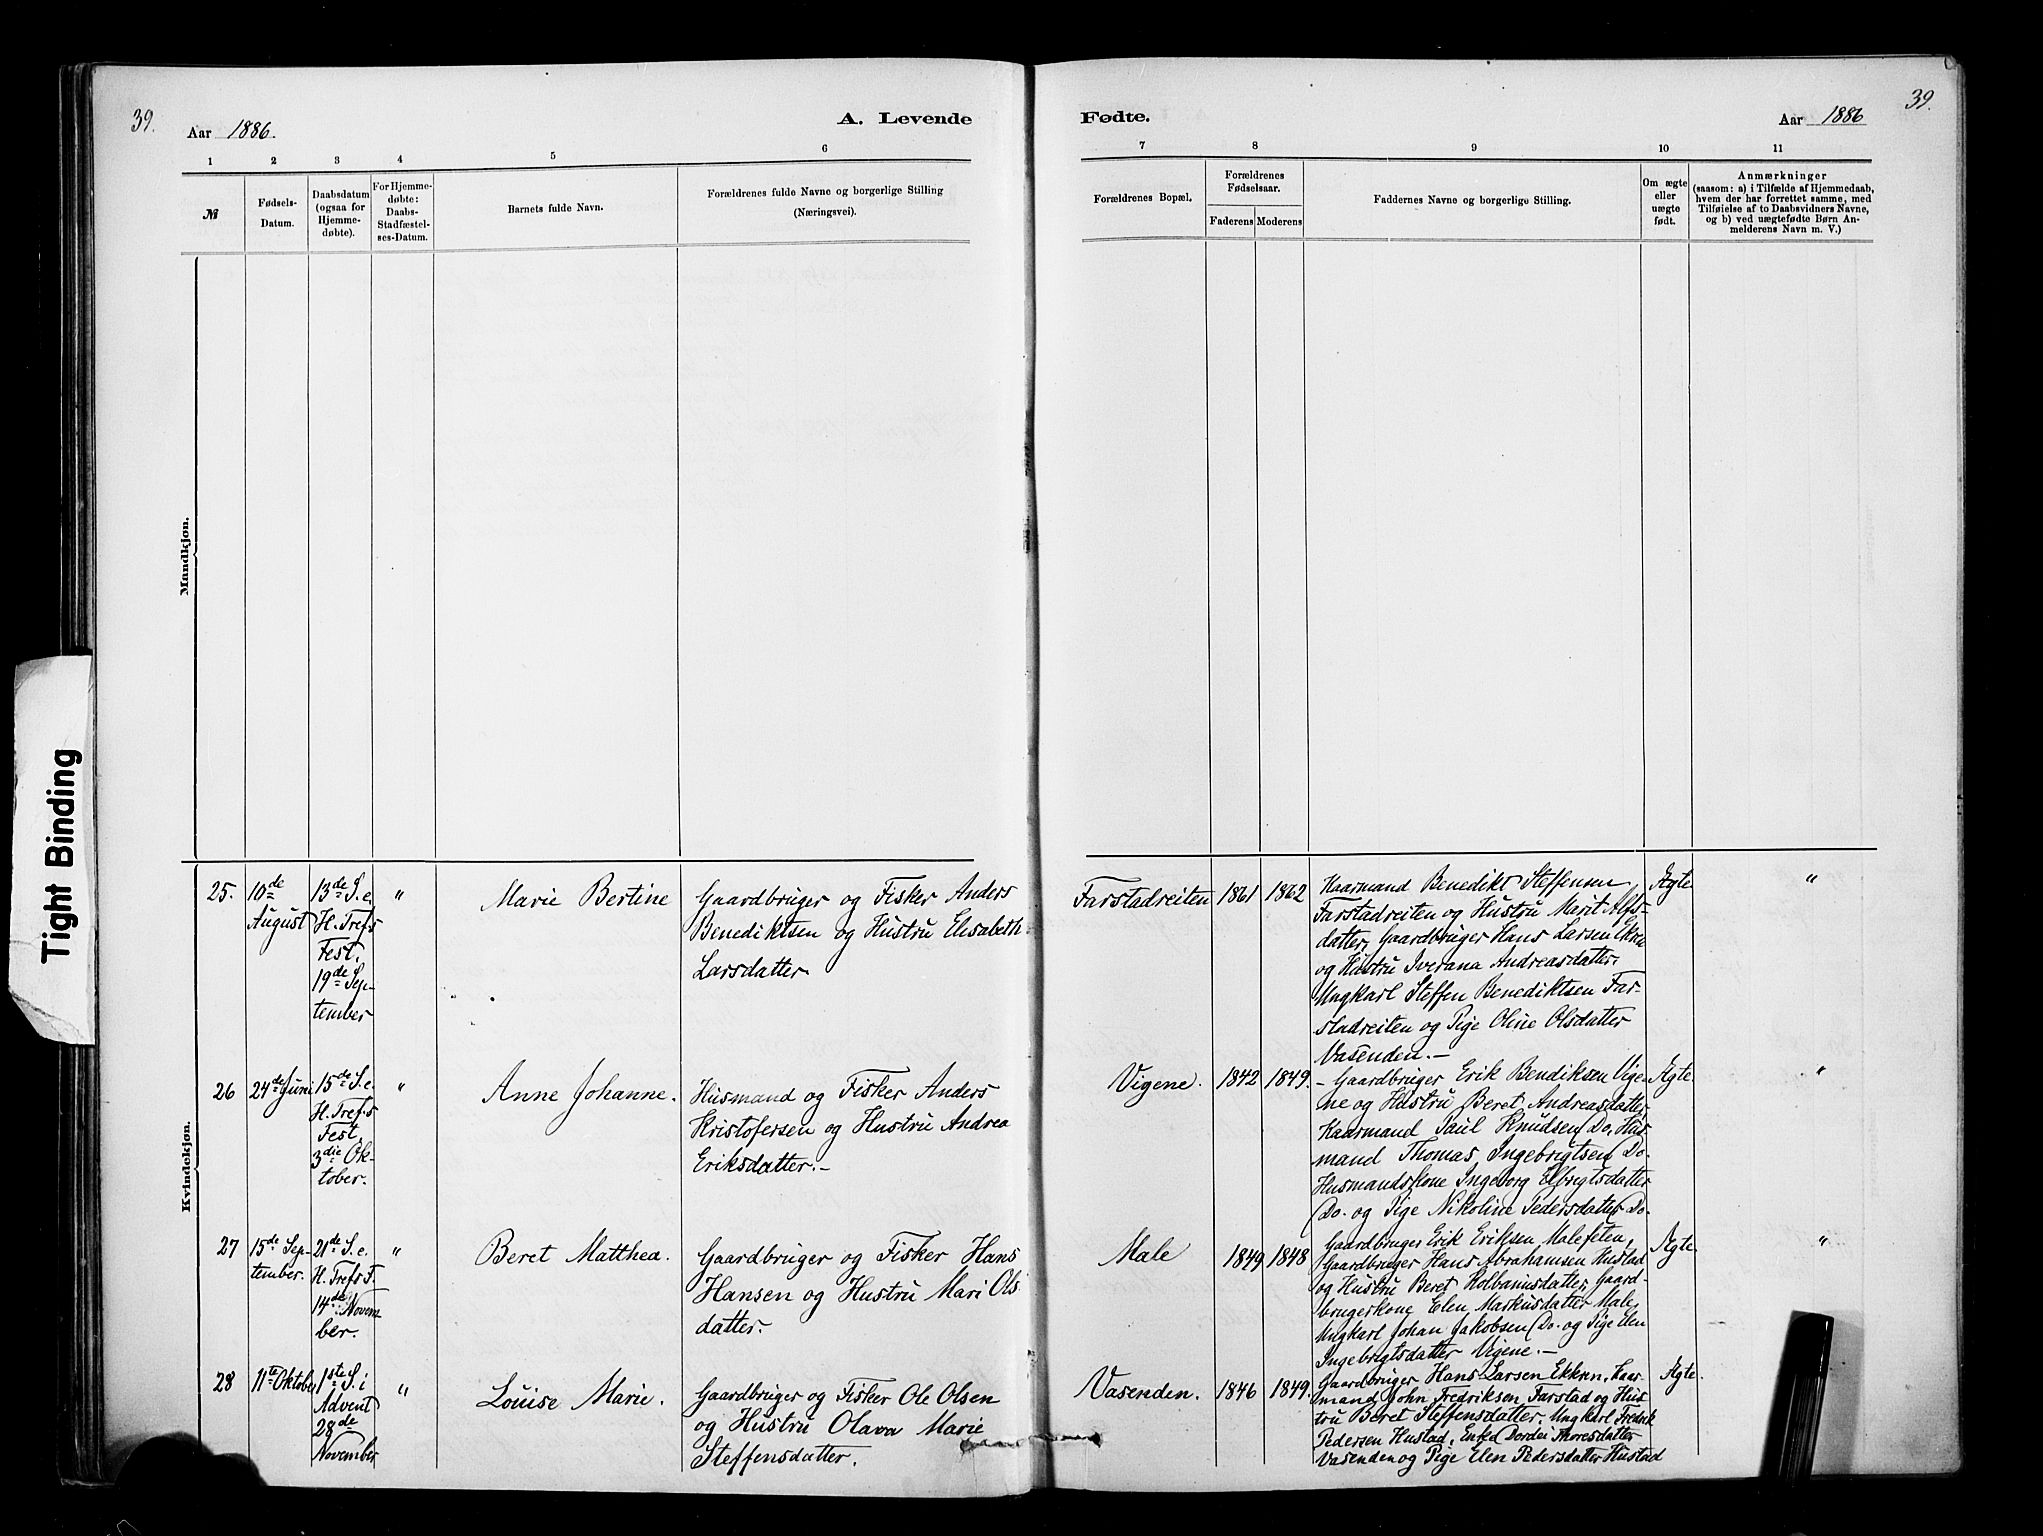 39.
Aar 1886.
A. Levende
Fødte.
Aar 1886
39.
1 2 3 4 5 6
7 8 9 10 11
№
Fødsels-
Datum.
Daabsdatum
(ogsaa for
Hjemme-
døbte).
For Hjemme-
døbte:
Daabs-
Stadfæstel-
ses-Datum.
Barnets fulde Navn.
Forældrenes fulde Navne og borgerlige Stilling
(Næringsvei).
Forældrenes Bopæl.
Forældrenes
Fødselsaar.
Faderens Moderens
Faddernes Navne og borgerlige Stilling.
Om ægte
eller
uægte
født.
Anmærkninger
(saasom: a) i Tilfælde af Hjemmedaab,
hvem der har forrettet samme, med
Tilføielse af to Daabsvidners Navne,
og b) ved uægtefødte Børn An-
melderens Navn m. V.)
Mandkjøn.
Kvindekjøn.
Tight Binding
25.
10de
August
13de S. e.
H. Tref.s
Fest,
19de Sep-
tember
"
Marie Bertine
Gaardbruger og Fisker Anders
Benediktsen og Hustru Elisabeth
Larsdatter.
Farstadreiten
1861
1862
Kaarmand Benedikt Steffensen
Farstadreiten og Hustru Marit Alfs-
datter, Gaardbruger Hans Larsen Ekren
og Hustru Iverana Andreasdatter.
Ungkarl Steffen Benediktsen Far-
stadreiten og Pige Oline Olsdatter
Vasenden.-
Ægte
"
26
24de Juni
15de S. e.
H. Tref.s
Fest,
3die Ok-
tober.
"
Anne Johanne.
Husmand og Fisker Anders
Kristofersen og Hustru Andrea
Eriksdatter.-
Vigene.
1842
1849.
- Gaardbruger Erik Bendiksen Vige-
ne og Hustru Beret Andreasdatter,
Kaarmand Paul Knudsen Do. Hus-
mand Thomas Ingebrigtsen Do.
Husmandskone Ingeborg Elbrigtsdatter
Do. og Pige Nikoline Pedersdatter Do.
Ægte.
"
27
15de Sep-
tember.
21de S. e.
H. Tref.s F.
14de Novem-
ber.
"
Beret Matthea.
Gaardbruger og Fisker Hans
Hansen og Hustru Mari Ols-
datter.
Male
1849
1848
Gaardbruger Erik Eriksen Malefeten,
Gaardbruger Hans Abrahamsen Hustad
og Hustru Beret Kolbanusdatter, Gaard-
brugerkone Elen Markusdatter Male,
Ungkarl Johan Jakobsen Do. og Pige Elen
Ingebrigtsdatter Vigene.-
Ægte.
"
28
11te Oktober
1ste S. i
Advent
28de
November
"
Louise Marie.
Gaardbruger og Fisker Ole Olsen
og Hustru Olava Marie
Steffensdatter.
Vasenden.
1846
1849.
Gaardbruger Hans Larsen Ekren, Kaar-
mand John Fredriksen Farstad og Hus-
tru Beret Steffensdatter. Ungkarl Fredrik
Pedersen Hustad, Enke Dordei Thoresdatter
Vasenden og Pige Elen Pedersdatter Hustad
Ægte.